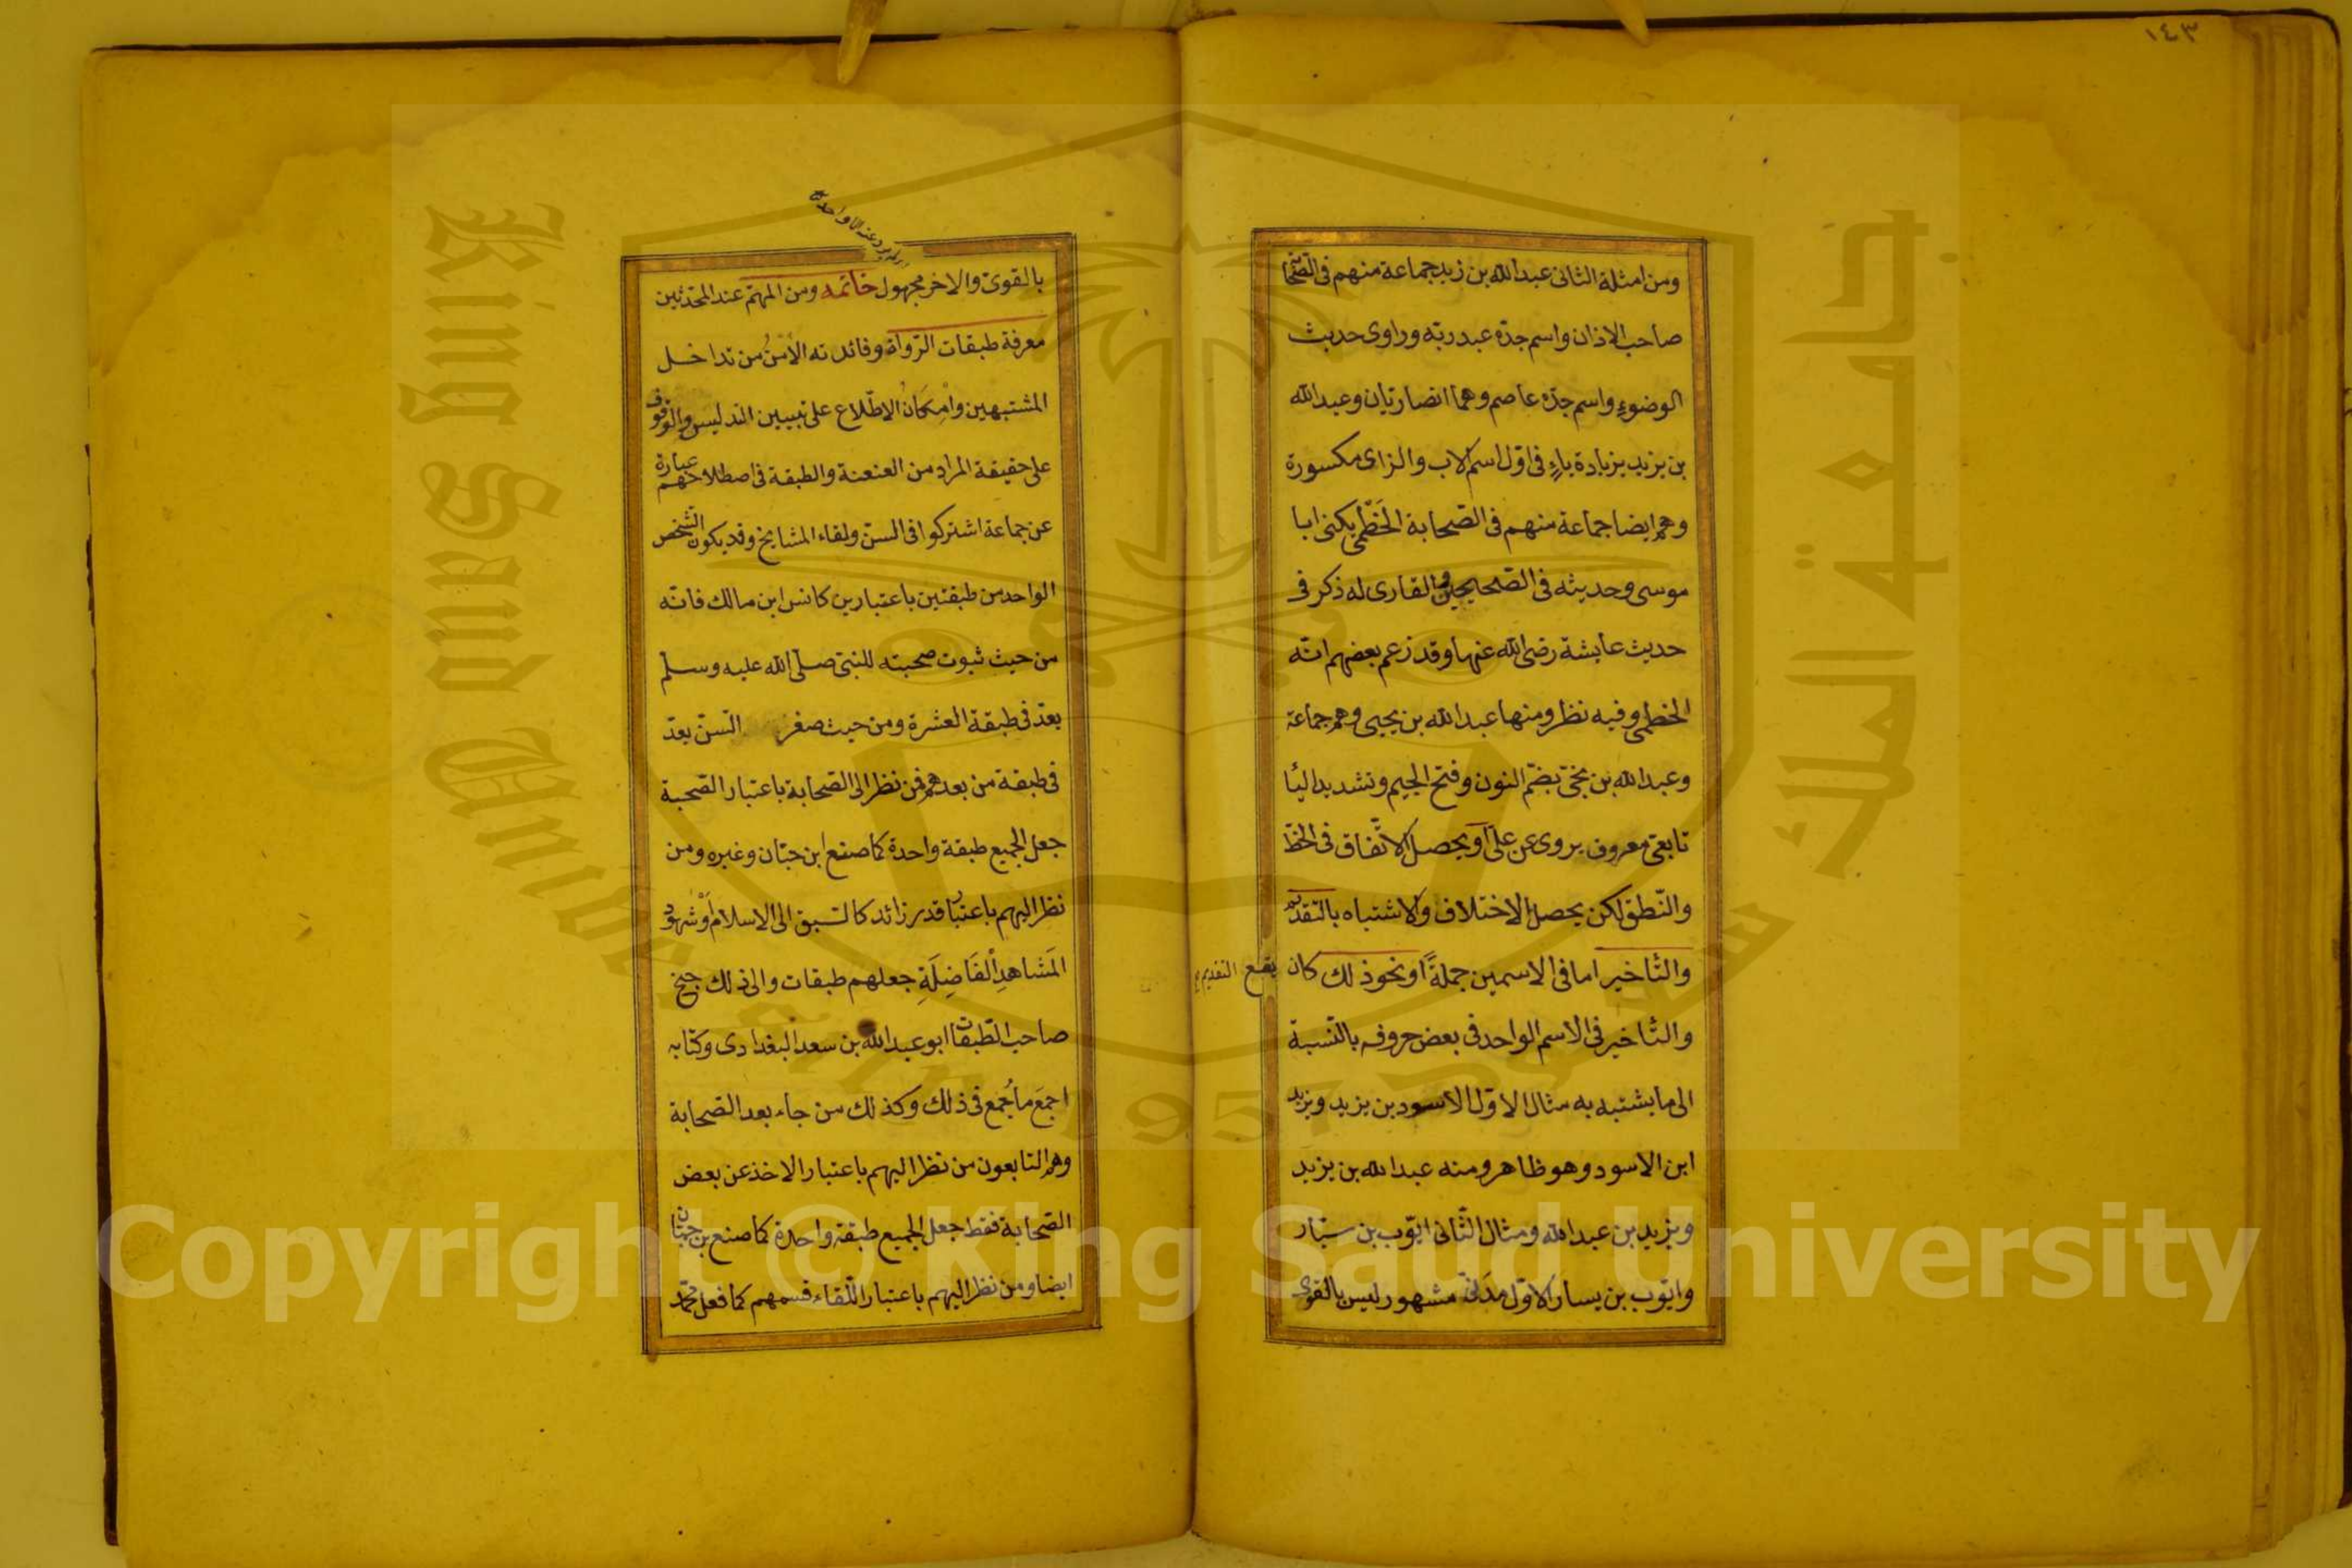 ١٤٣
ومن امثلة الثانى عبد الله بن زيد جماعة منهم فى الصّحابة
صاحب الاذان واسم جدّه عبد ربّه وراوى حديث
الوضوءِ واسم جدّه عاصم وهما انصاريّان وعبد الله
بن يزيد بزيادة ياءٍ فى اوّل اسم الاب والزاى مكسورة
وهم ايضا جماعة منهم فى الصّحابة الخَطْمى يكنى ابا
موسى وحديثه فى الصّحيحين والقارى له ذكر فى
حديث عايشة رضى الله عنها وقد زعم بعضهم انّه
الخطمى وفيه نظر ومنها عبد الله بن يحيى وهم جماعة
وعبد الله بن نجىّ بضمّ النون وفتح الجيم وتشديد اليا
تابعىّ معروف يروى عن علىّ او يحصل الاتّفاق فى الخطّ
والنّطق لكن يحصل الاختلاف والاشتباه بالتّقديم
والتّاخير اما فى الاسمين جملةً او نحو ذلك كان يقع التقديم
والتّاخير فى الاسم الواحد فى بعض حروفه بالنّسبة
الى ما يشتبه به مثال الاوّل الاسود بن يزيد ويزيد
ابن الاسود وهو ظاهر ومنه عبد الله بن يزيد
ويزيد بن عبد الله ومثال الثّانى ايّوب بن سيّار
وايّوب بن يسار الاوّل مدَنىّ مشهور ليس بالقوى
بالقوىّ والاخر مجهول خاتمه ومن المهمّ عند المحدّثين
معرفة طبقات الرّواة وفائدته الأمْنُ من تداخل
المشتبهين وامِكَانُ الاطّلاع على تبيين التدليس والوقوف
على حقيقة المراد من العنعنة والطبقة فى اصطلاحهم عبارة
عن جماعة اشتركوا فى السنّ ولقاء المشايخ وقد يكون الشّخص
الواحد من طبقتين باعتبارين كانس ابن مالك فانّه
من حيث ثبوت صحبته للنبىّ صلّى الله عليه وسلم
يعدّ فى طبقة العشرة ومن حيث صغر السّنّ يعدّ
فى طبقة من بعدهم فمن نظر الى الصّحابة باعتبار الصّحبة
جعل الجميع طبقة واحدة كما صنع ابن حبّان وغيره ومن
نظر اليهم باعتبار قدر زائد كالسّبق الى الاسلام أوْ شهود
المَشاهدِ الفَاضِلَةِ جعلهم طبقات والى ذلك جنح
صاحب الطّبقات ابو عبد الله بن سعد البغدادى وكتابه
اجمَع ما جُمع فى ذلك وكذلك من جاء بعد الصّحابة
وهم التابعون من نظر اليهم باعتبار الاخذ عن بعض
الصّحابة فقط جعل الجميع طبقة واحدة كما صنع بن حبّان
ايضا ومن نظر اليهم باعتبار اللّقاء قسمهم كما فعل محمّد
جامعة الملك سعود
King Saud University
1957
Copyright © King Saud University